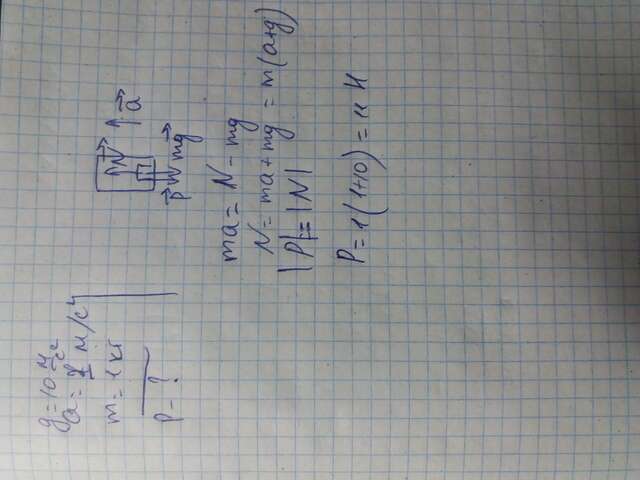 g=10 м/с²
a=1 м/с²
m=1кг
P=?
N a
mg
P
ma=N-mg
N=ma+mg=m(a+g)
|P|=|N|
P=1(1+10)=11 Н